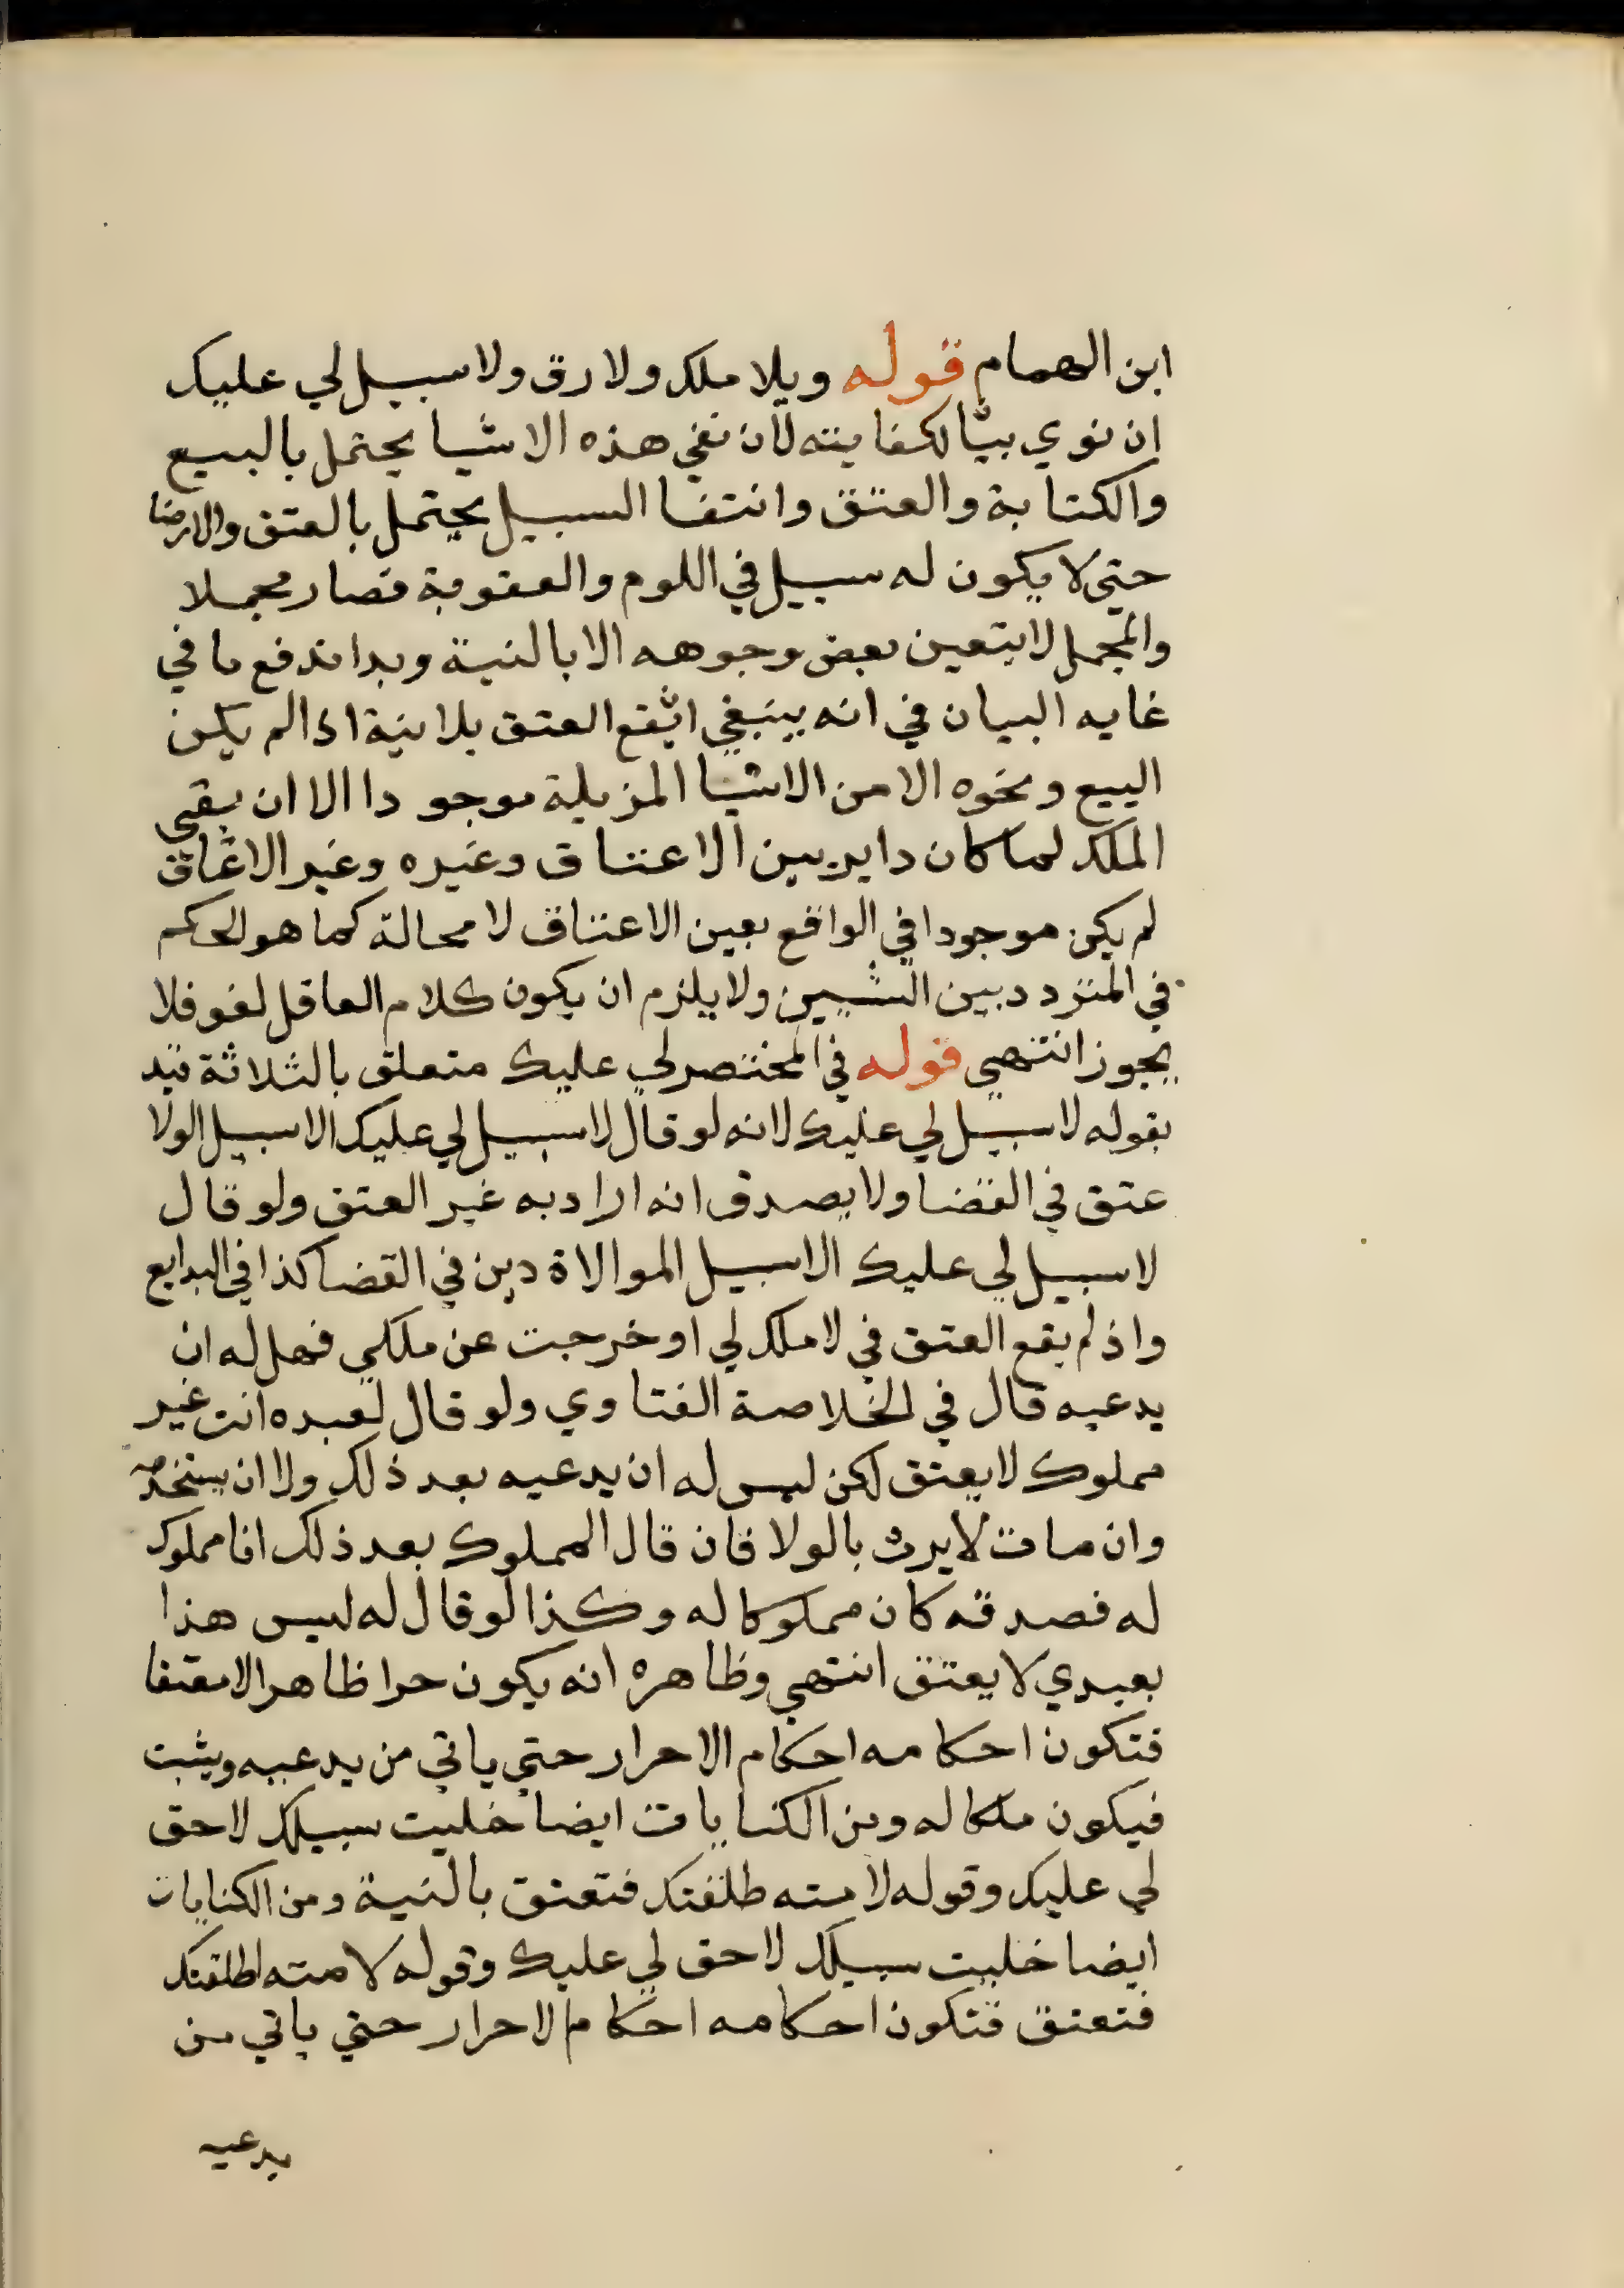 ابن الهمام قوله وبلا ملك ولا رق ولا سبيل لي عليك
ان نوي بيا لكفايته لان نفي هذه الاشيا يحتمل بالبيع
والكتابة والعتق وانتفا السبيل يحتمل بالعتق والارضا
حتي لا يكون له سبيل في اللوم والعقوبة فصار مجملا
والمجمل لا يتعين بعض وجوهه الا بالنية وبدا ندفع ما في
غايه البيان في انه ينبغي ان يقع العتق بلا نية اذا لم يكن
البيع ونحوه الا من الاشيا المزيلة موجودا الا ان يبقي
الملك لما كان داير بين الاعتاق وغيره وغير الاعتاق
لم يكن موجودا في الواقع بعين الاعتاق لا محالة كما هو الحكم
في المتردد بين الشيين ولا يلزم ان يكون كلام العاقل لغو فلا
يجوز انتهي قوله في المختصر لي عليك متعلق بالثلاثة قيد
بقوله لا سبيل لي عليك لانه لو قال لا سبيل لي عليك الا سبيل الولا
عتق في القضا ولا يصدق انه اراد به غير العتق ولو قال
لا سبيل لي عليك الا سبيل الموالاة دين في القضا كذا في البدايع
واذ لم يقع العتق في لا ملك لي او خرجت عن ملكي فهل له ان
يدعيه قال في الخلاصة الفتاوي ولو قال لعبده انت غير
مملوك لا يعتق لكن ليس له ان يدعيه بعد ذلك ولا ان يستخدمه
وان مات لا يرث بالولا فان قال المملوك بعد ذلك انا مملوك
له فصدقه كان مملوكا له وكذا لو قال له ليس هذا
بعبدي لا يعتق انتهي وظاهره انه يكون حرا ظاهرا لا معتقا
فتكون احكامه احكام الاحرار حتي ياتي من يدعيه ويثبت
فيكون ملكا له ومن الكنايات ايضا خليت سبيلك لا حق
لي عليك وقوله لامته طلقتك فتعتق بالنية ومن الكنايات
ايضا خليت سبيلك لا حق لي عليك وقوله لامته اطلقتك
فتعتق فتكون احكامه احكام الاحرار حتي ياتي من
يدعيه